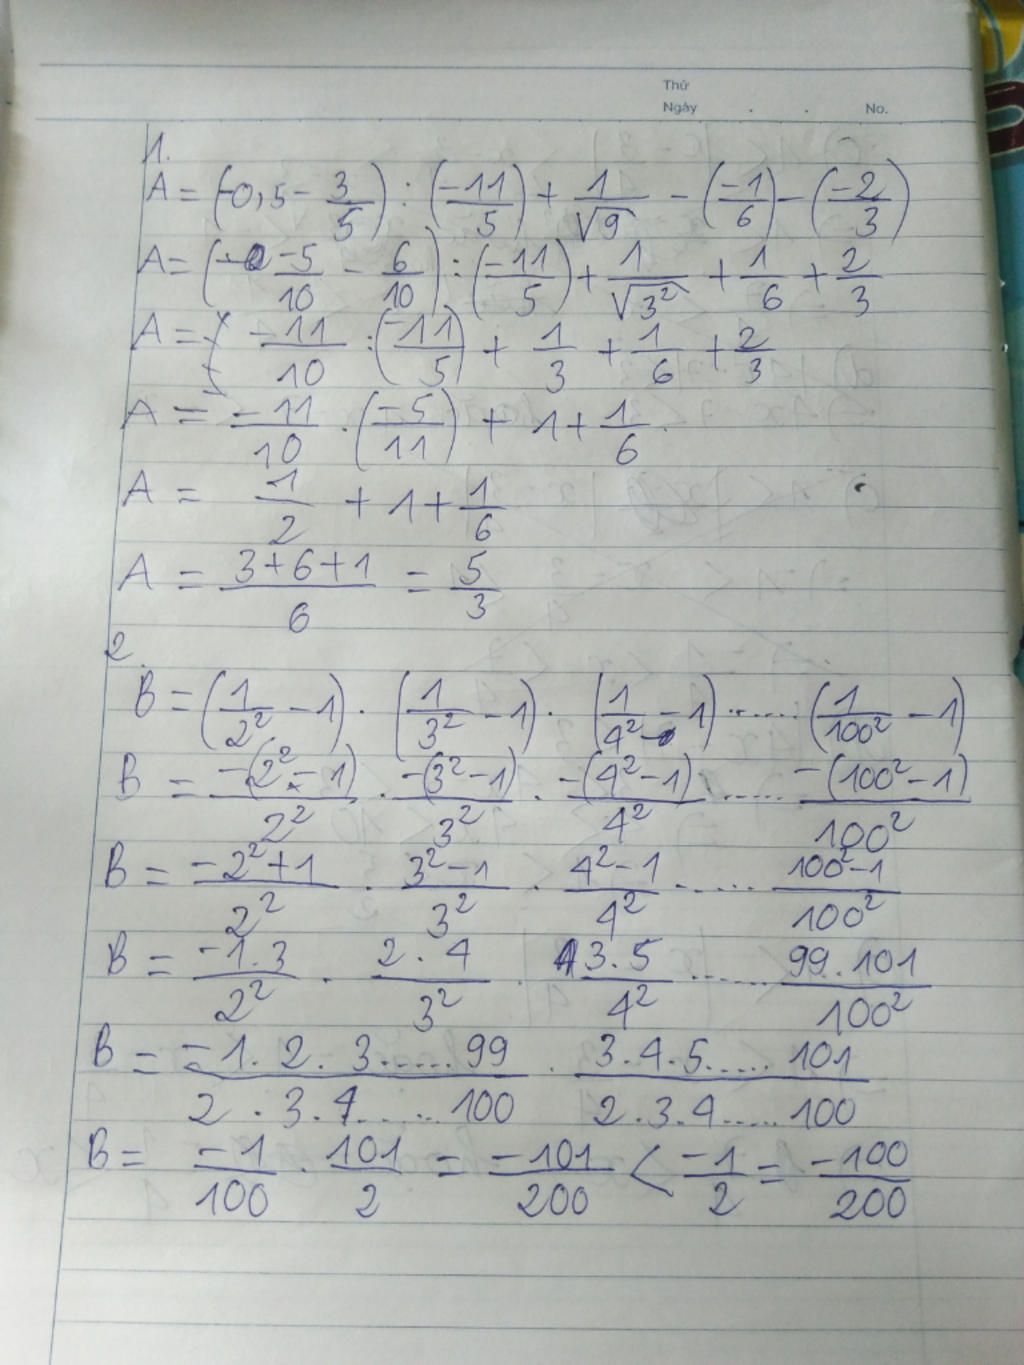 Thứ
Ngày . . No.
1.
A = (-0,5 - 3/5) : (-11/5) + 1/√9 - (-1/6) - (-2/3)
A = (-5/10 - 6/10) : (-11/5) + 1/√3² + 1/6 + 2/3
A = -11/10 : (-11/5) + 1/3 + 1/6 + 2/3
A = -11/10 . (-5/11) + 1 + 1/6
A = 1/2 + 1 + 1/6
A = (3+6+1)/6 = 5/3
2.
B = (1/2² - 1) . (1/3² - 1) . (1/4² - 1) ...... (1/100² - 1)
B = -(2² - 1)/2² . -(3² - 1)/3² . -(4² - 1)/4² ...... -(100² - 1)/100²
B = (-2² + 1)/2² . (3² - 1)/3² . (4² - 1)/4² ...... (100² - 1)/100²
B = (-1.3)/2² . (2.4)/3² . (3.5)/4² ...... (99.101)/100²
B = (-1.2.3......99)/(2.3.4......100) . (3.4.5.....101)/(2.3.4.....100)
B = -1/100 . 101/2 = -101/200 < -1/2 = -100/200